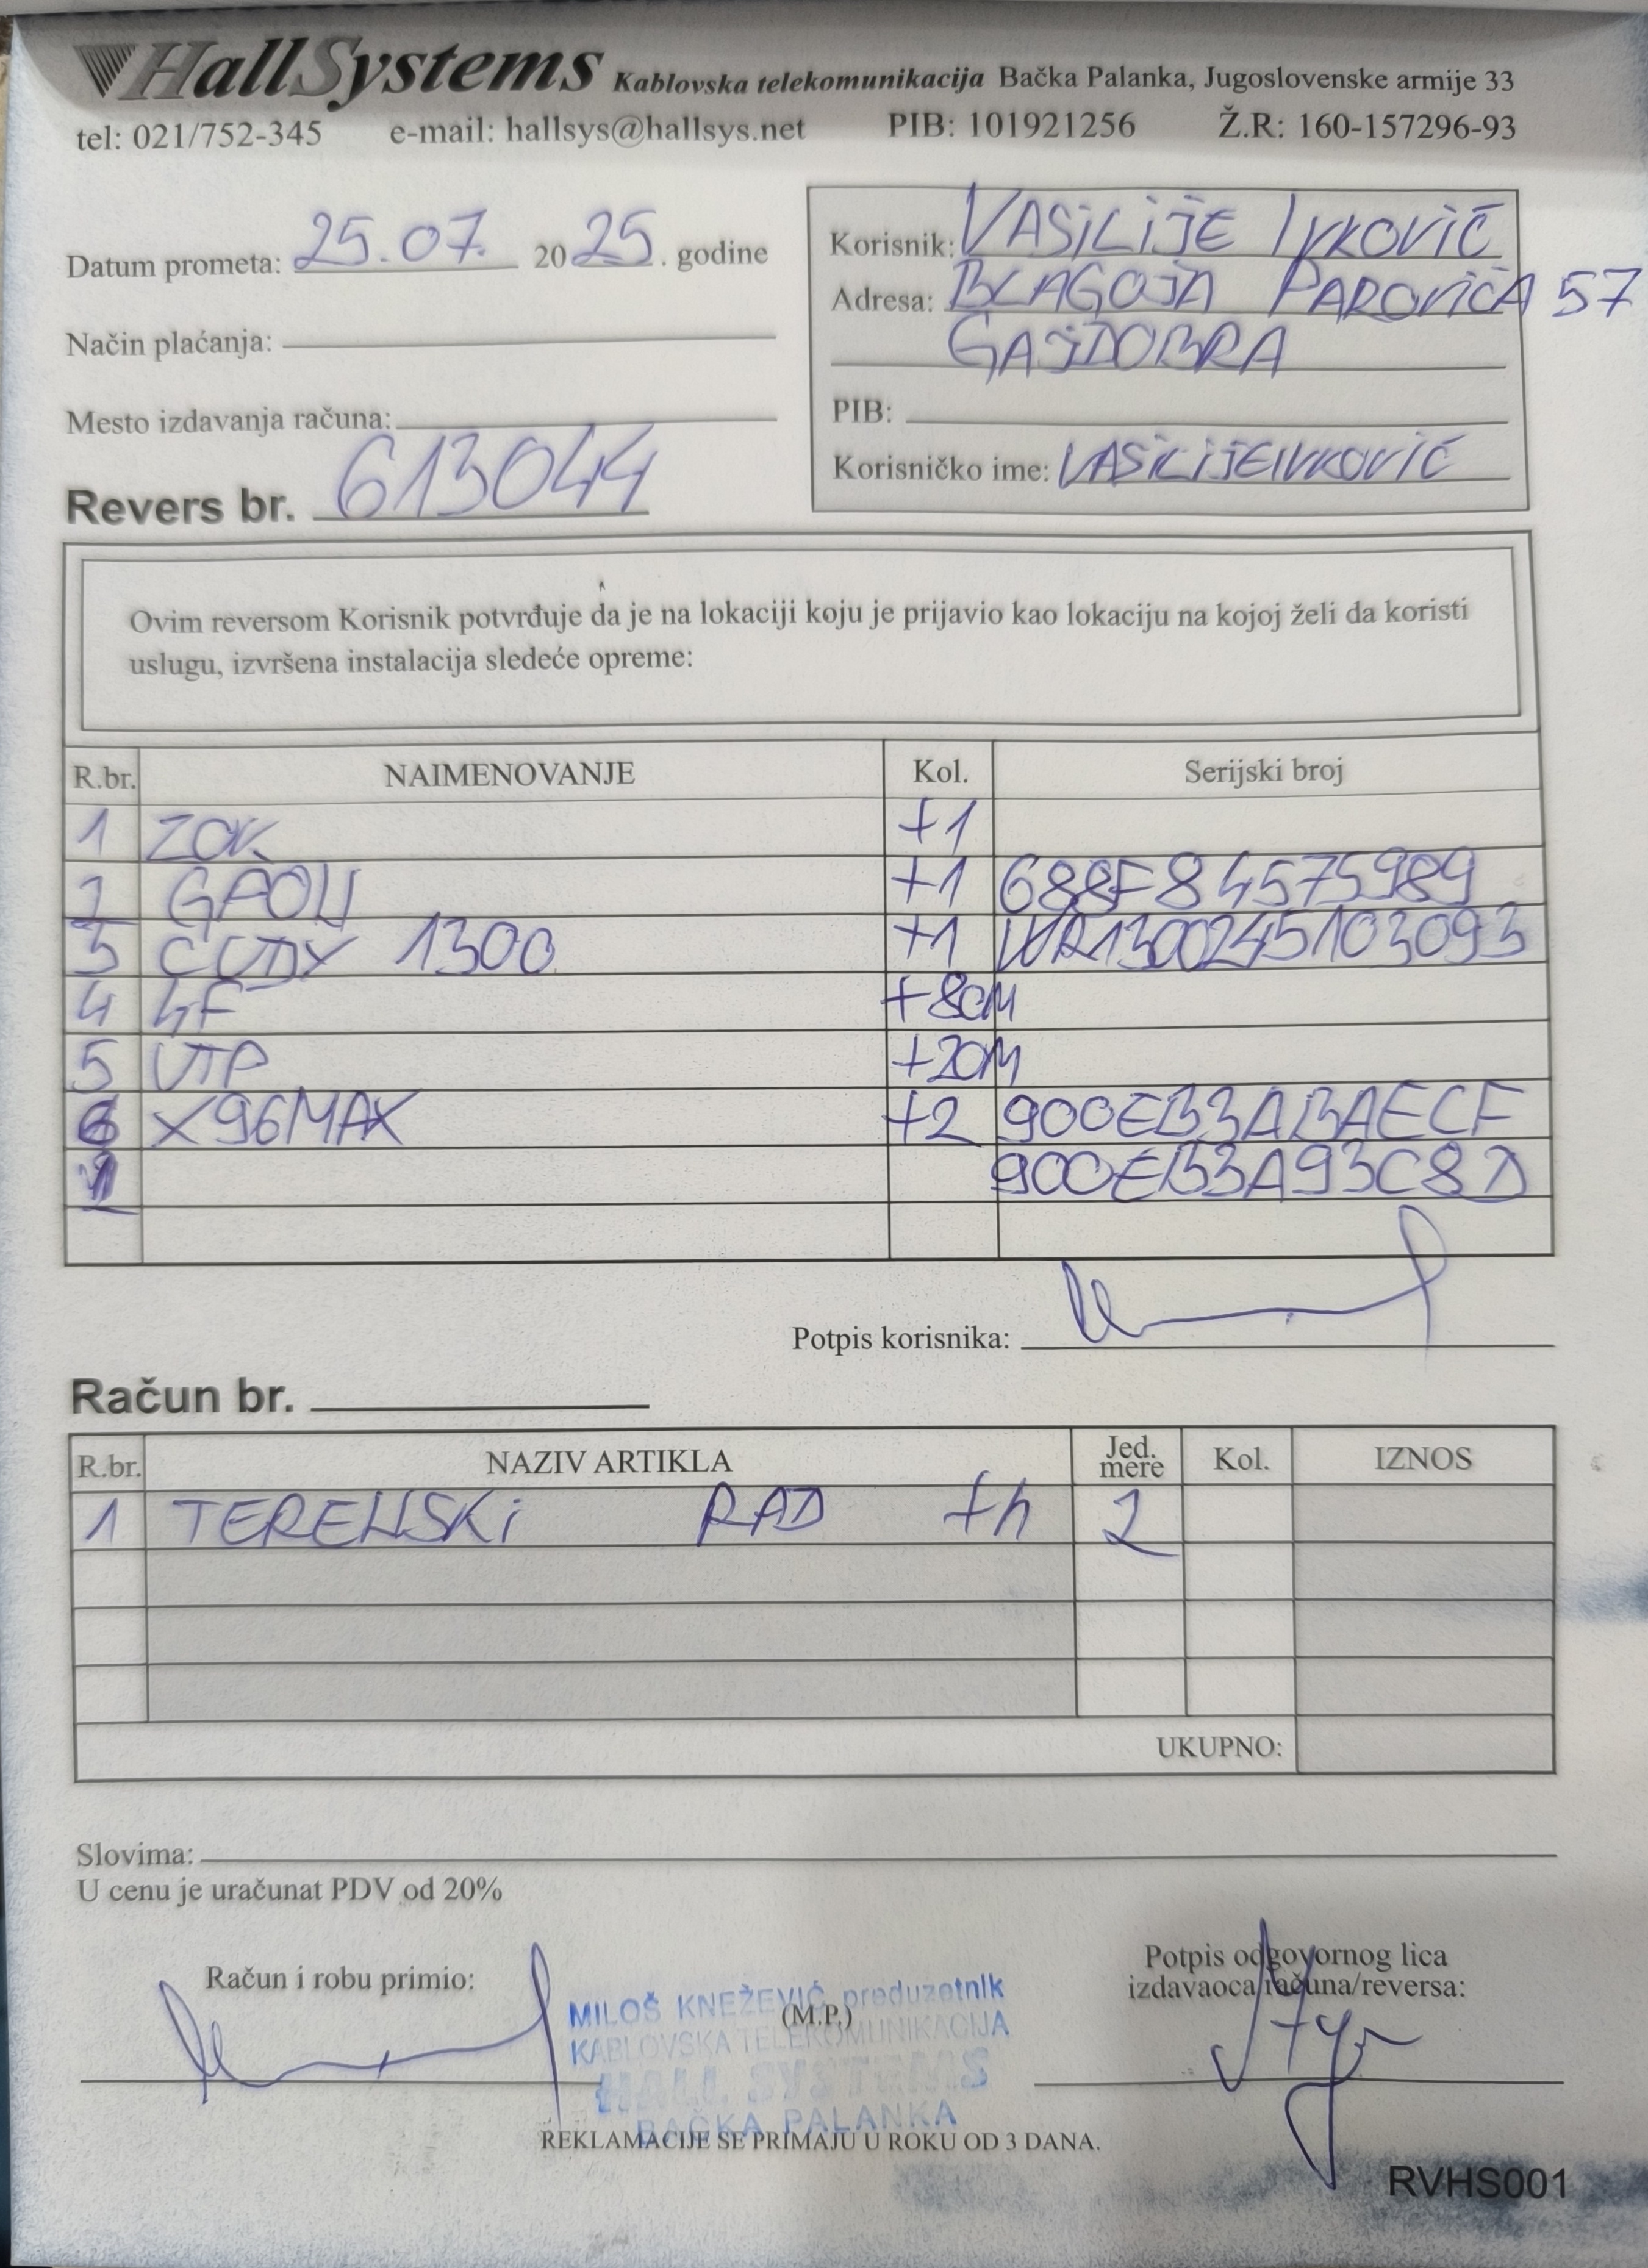 HallSystems Kablovska telekomunikacija Bačka Palanka, Jugoslovenske armije 33
tel: 021/752-345 e-mail: hallsys@hallsys.net PIB: 101921256 Ž.R: 160-157296-93
Datum prometa: 25.07. 2025. godine
Način plaćanja:
Mesto izdavanja računa:
Revers br. 613044
Korisnik: VASILIJE IVKOVIĆ
Adresa: BLAGOJA PAROVIĆA 57
GAJDOBRA
PIB:
Korisničko ime: VASILIJEIVKOVIĆ
Ovim reversom Korisnik potvrđuje da je na lokaciji koju je prijavio kao lokaciju na kojoj želi da koristi
uslugu, izvršena instalacija sledeće opreme:
R.br. NAIMENOVANJE Kol. Serijski broj
1 ZOK +1
2 GPON +1 688F84575989
3 CUDY 1300 +1 WR1300245103093
4 4F +80M
5 UTP +20M
6 X96MAX +2 900EB3ABAECF
900EB3A93C8D
Potpis korisnika:
Račun br.
R.br. NAZIV ARTIKLA Jed. mere Kol. IZNOS
1 TERENSKI RAD +h 2
UKUPNO:
Slovima:
U cenu je uračunat PDV od 20%
Račun i robu primio:
MILOŠ KNEŽEVIĆ preduzetnik
(M.P.)
KABLOVSKA TELEKOMUNIKACIJA
HALL SYSTEMS
BAČKA PALANKA
Potpis odgovornog lica
izdavaoca računa/reversa:
REKLAMACIJE SE PRIMAJU U ROKU OD 3 DANA.
RVHS001